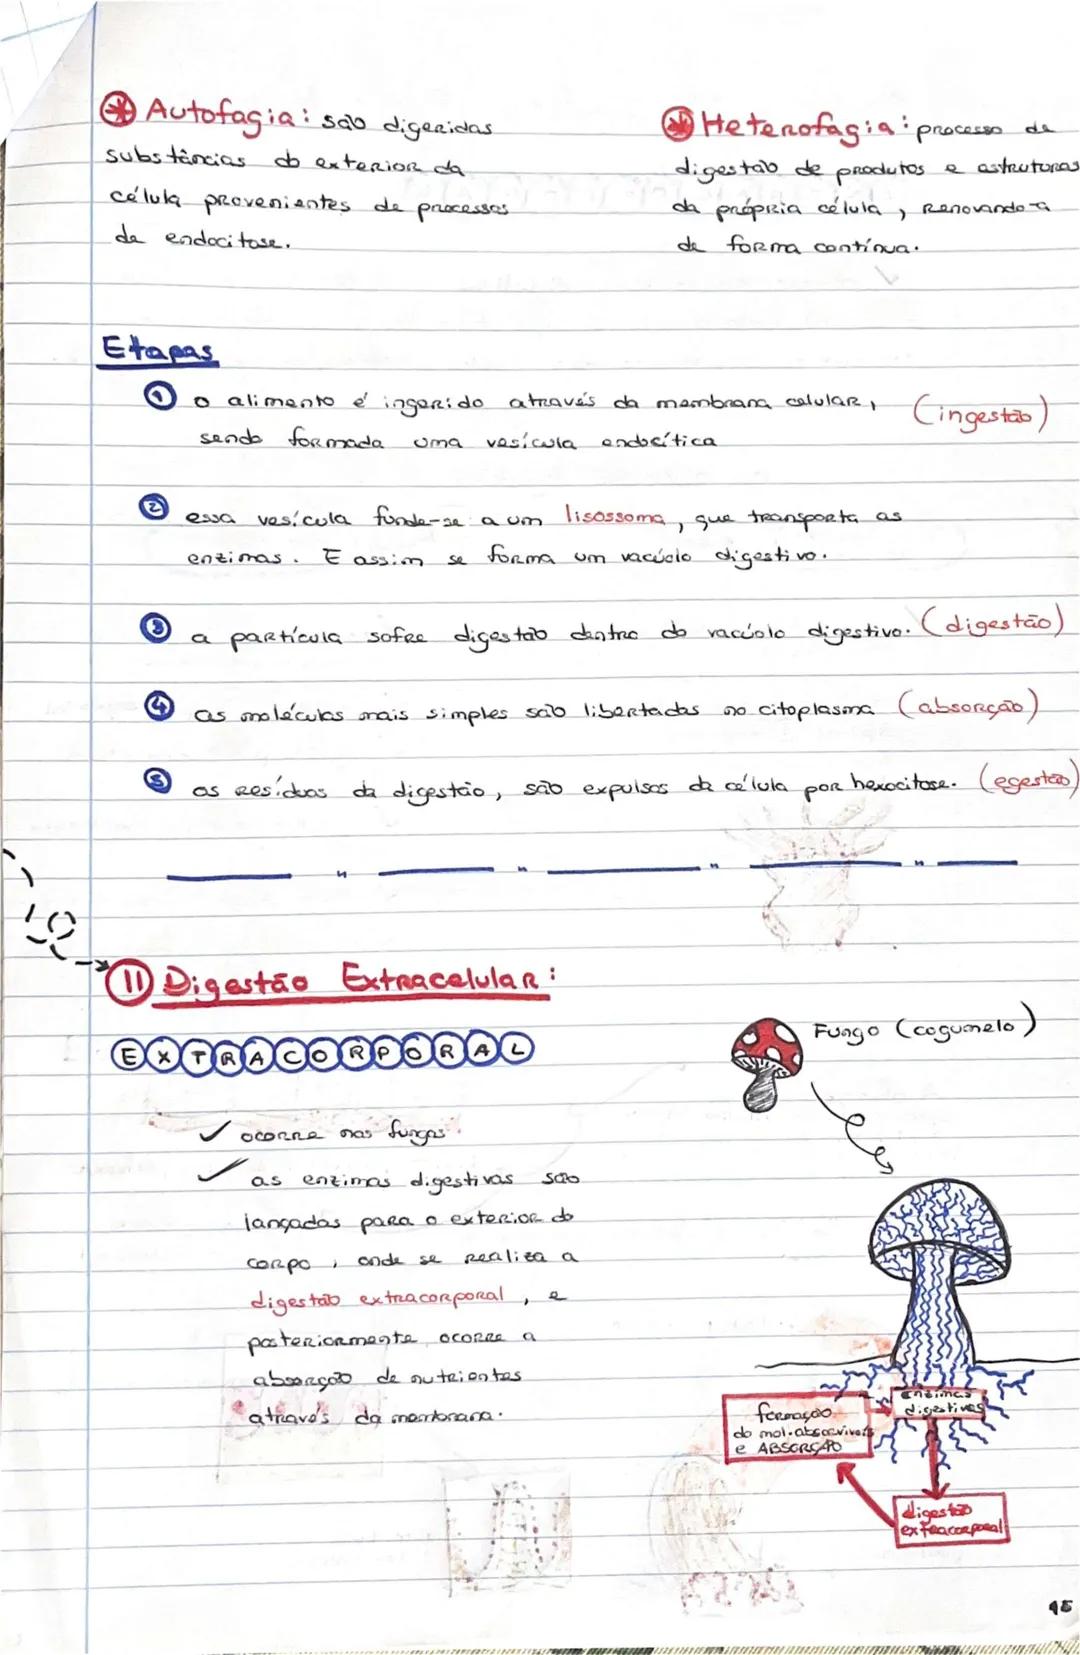 Autofagia: são digeridas
substâncias do exterior da
célula provenientes de processos
de endocitose.
Heterofagia: processo de
digestão de produtos e estruturas
da própria célula, renovando-a
de forma contínua.
Etapas
1 o alimento é ingerido através da membrana celular, (ingestão)
sendo formada uma vesícula endocítica
2 essa vesícula funde-se a um lisossoma, que transporta as
enzimas. E assim se forma um vacúolo digestivo.
3 a partícula sofre digestão dentro do vacúolo digestivo. (digestão)
4 as moléculas mais simples são libertadas no citoplasma (absorção)
5 os resíduos da digestão, são expulsos da célula por hexocitose. (egestão)
II Digestão Extracelular:
EXTRACORPORAL
✓ ocorre nos fungos.
✓ as enzimas digestivas são
lançadas para o exterior do
corpo, onde se realiza a
digestão extracorporal, e
posteriormente ocorre a
absorção de nutrientes
através da membrana.
Fungo (cogumelo)
enzimas
digestivas
formação
do mol. absorvíveis
e ABSORÇÃO
digestão
extracorporal
45